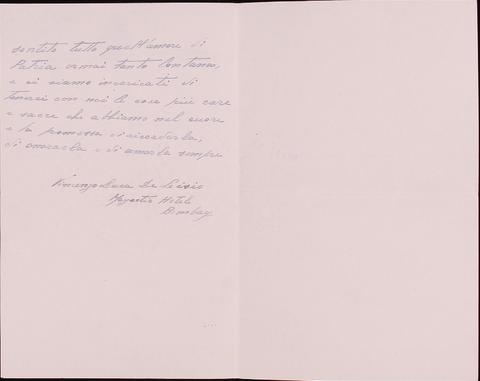 sentito tutto quell'amore di
Patria ormai tanto lontana,
e ci siamo incaricati di
tenerci con noi le cose più care
e sacre che abbiamo nel cuore
e la promessa di ricordarla,
di onorarla e di amarla sempre
Vincenzo Luca De
Majestic Hotel
Bombay